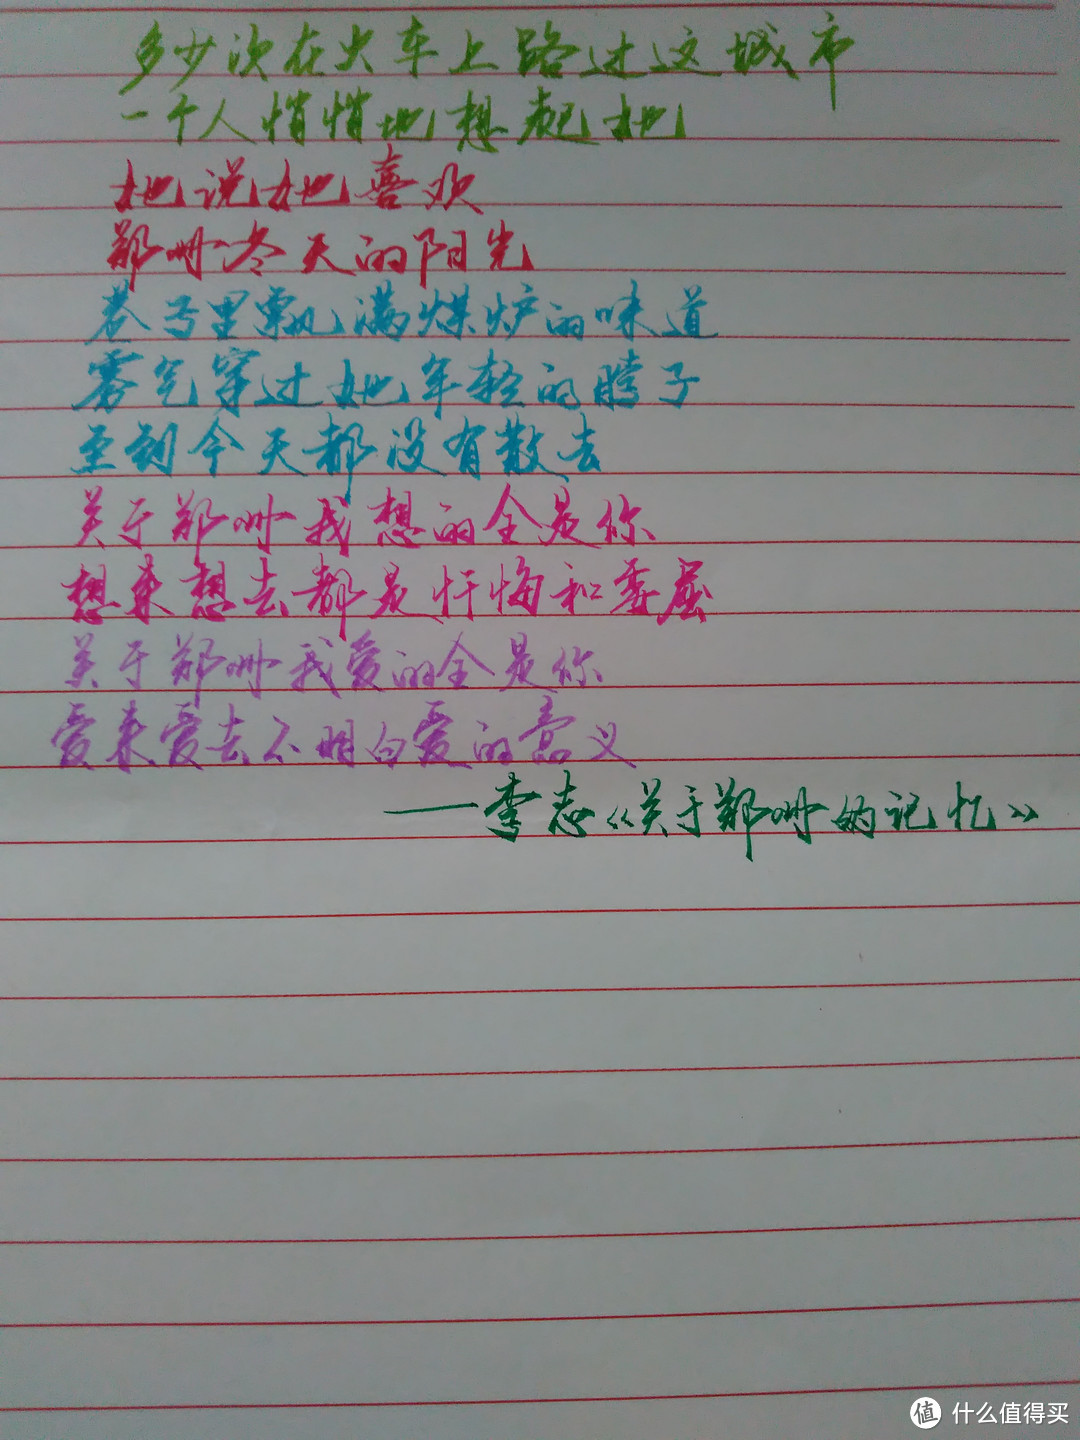 多少次在火车上路过这城市
一个人悄悄地想起她
她说她喜欢
郑州冬天的阳光
巷子里飘满煤炉的味道
雾气穿过她年轻的脖子
至到今天都没有散去
关于郑州我想的全是你
想来想去都是忏悔和委屈
关于郑州我爱的全是你
爱来爱去不明白爱的意义
——李志《关于郑州的记忆》
值 什么值得买